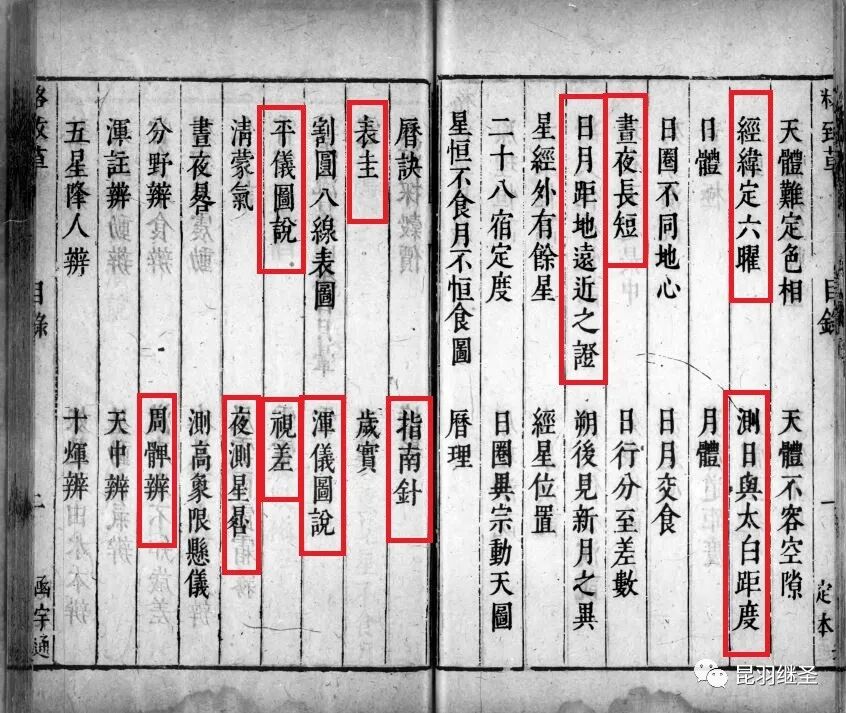 致草 目錄 一 定本
天體難定色相 天體不容空隙
經緯定六曜 測日與太白距度
日體 月體
日圈不同地心 日月交食
晝夜長短 日行分至差數
日月距地遠近之證 朔後見新月之異
星經外有餘星 經星位置
二十八宿定度 日圈異宗動天圖
星恒不食月不恒食圖 曆理
曆訣 指南針
表圭 歲實
割圓八線表圖 渾儀圖說
平儀圖說 視差
清蒙氣 夜測星晷
晝夜晷 測高象限懸儀
分野辨 周髀辨
渾註辨 天中辨
五星降人辨 十煇辨
格致草 目錄 二 函宇通
昆羽继圣